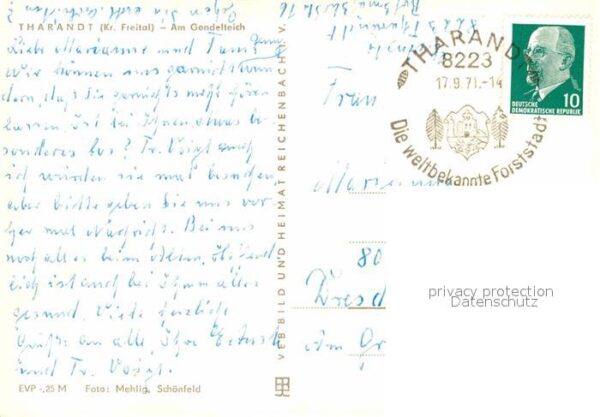 THARANDT (Kr. Freital) — Am Gondelteich
Liebe Marianne und Tanj
Wir können uns garnicht wun
dern, daß Sie garnichts mehr hören
lassen. Ist bei Ihnen etwas be
sonderes los? Fr. Voigt auch
ich würden sie mal besuchen
aber bitte geben Sie uns vor
her mal Nachricht. Bei uns
noch alles beim Alten,
lich ist auch bei Ihnen alles
gesund. Viele herzliche
Grüße an alle, Ihre
und Fr. Voigt.
EVP -,25 M Foto: Mehlig, Schönfeld
VEB BILD UND HEIMAT REICHENBACH I. V.
8223 Tharandt
THARANDT
8223
17.9.71.-14
Die weltbekannte Forststadt
DEUTSCHE
DEMOKRATISCHE REPUBLIK
10
Frau
80
Dresd
Am Gr
privacy protection
Datenschutz